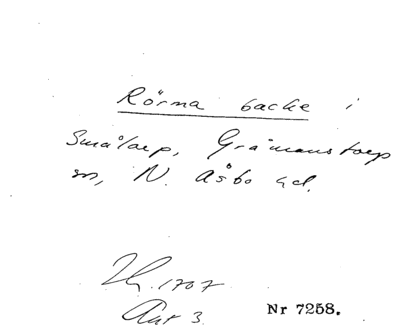 Rörma backe i
Smålarp, Grämanstorp
sn, N. Åsbo hd.
1707
Ant 3.
Nr 7258.